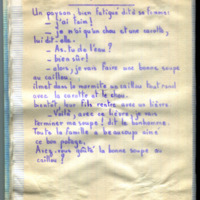 Un paysan, bien fatigué dit à sa femme:
- j'ai faim!
- je n'ai qu'un chou et une carotte,
lui dit-elle.
- As-tu de l'eau?
- bien sûr!
- alors, je vais faire une bonne soupe
au caillou.
il met dans la marmite un caillou tout rond
avec la carotte et le chou.
bientôt, leur fils rentre avec un lièvre.
- Voilà, avec ce lièvre, je vais
terminer ma soupe! dit le bonhomme.
Toute la famille a beaucoup aimé
ce bon potage.
Avez-vous goûté la bonne soupe au
caillou?